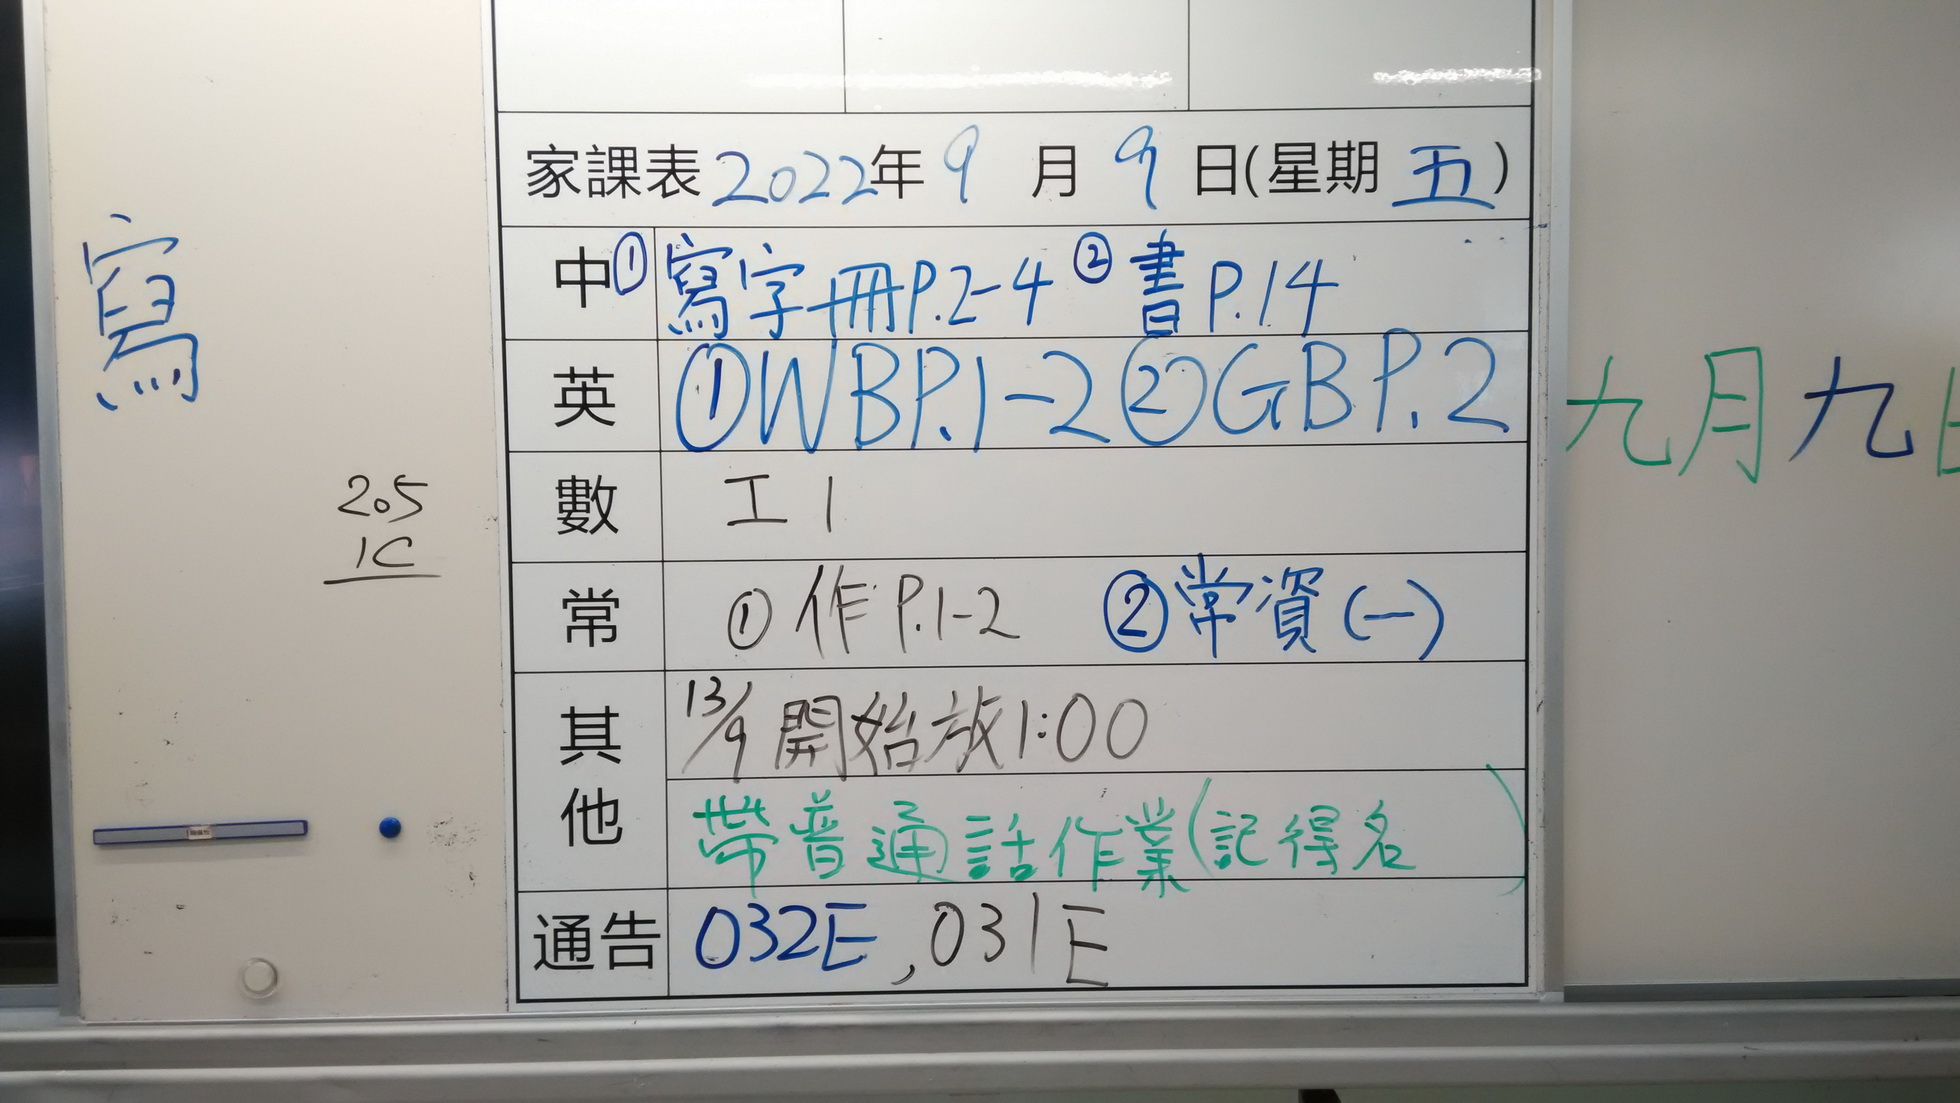 家課表 2022年 9 月 9 日(星期 五)
中 ① 寫字冊P.2-4 ② 書 P.14
英 ①WBP.1-2 ②GBP.2
數 工1
常 ① 作 P.1-2 ②常資(一)
其他 13/9 開始放1:00
帶普通話作業(記得名 )
通告 032E, 031E
寫
205
1C
九月九日